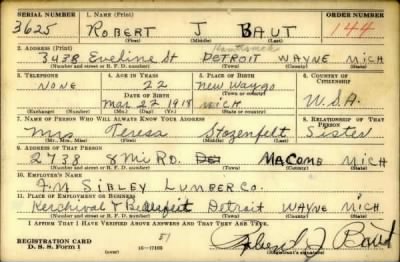 SERIAL NUMBER 1. NAME (Print) ORDER NUMBER
3625 ROBERT J BAUT 144
(First) (Middle) (Last)
2. ADDRESS (Print) Hamtramck
3438 Eveline St DETROIT WAYNE MICH
(Number and street or R. F. D. number) (Town) (County) (State)
3. TELEPHONE 4. AGE IN YEARS 5. PLACE OF BIRTH 6. COUNTRY OF CITIZENSHIP
NONE 22 NEWAYGO
DATE OF BIRTH (Town or county)
Mar 22 1918 MICH U.S.A.
(Exchange) (Number) (Mo.) (Day) (Yr.) (State or country)
7. NAME OF PERSON WHO WILL ALWAYS KNOW YOUR ADDRESS 8. RELATIONSHIP OF THAT PERSON
Mrs Teresa Stozenfelt Sister
(Mr., Mrs., Miss) (First) (Middle) (Last)
9. ADDRESS OF THAT PERSON
2738 8 Mi RD. MACOMB MICH
(Number and street or R. F. D. number) (Town) (County) (State)
10. EMPLOYER'S NAME
F. M SIBLEY LUMBER CO.
11. PLACE OF EMPLOYMENT OR BUSINESS
Kerchival & Detroit WAYNE MICH
(Number and street or R. F. D. number) (Town) (County) (State)
I AFFIRM THAT I HAVE VERIFIED ABOVE ANSWERS AND THAT THEY ARE TRUE.
REGISTRATION CARD 51 Robert J Baut
D. S. S. Form 1 (over) 16-17105 (Registrant's signature)